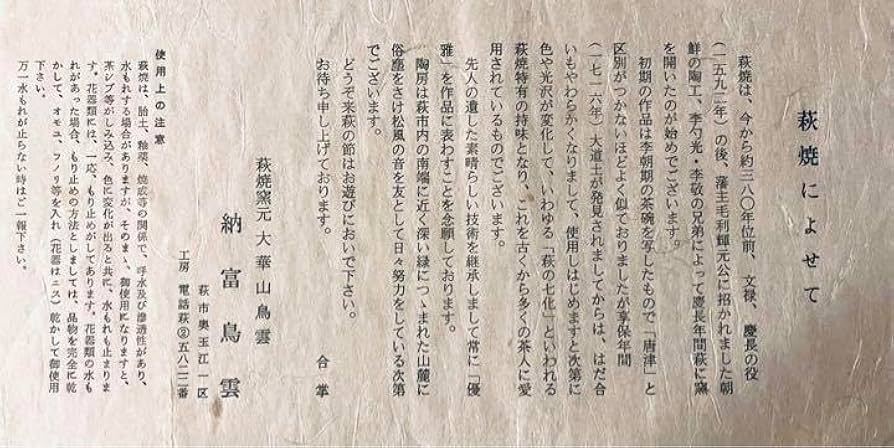 萩焼によせて
萩焼は、今から約三八〇年位前、文禄、慶長の役
(一五九二年)の後、藩主毛利輝元公に招かれました朝
鮮の陶工、李勺光・李敬の兄弟によって慶長年間萩に窯
を開いたのが始めでございます。
初期の作品は李朝期の茶碗を写したもので「唐津」と
区別がつかないほどよく似ておりましたが享保年間
(一七一六年)大道土が発見されましてからは、はだ合
いもやわらかくなりまして、使用しはじめますと次第に
色や光沢が変化して、いわゆる「萩の七化」といわれる
萩焼特有の持味となり、これを古くから多くの茶人に愛
用されているものでございます。
先人の遺した素晴らしい技術を継承しまして常に「優
雅」を作品に表わすことを念願しております。
陶房は萩市内の南端に近く深い緑につゝまれた山麓に
俗塵をさけ松風の音を友として日々努力をしている次第
でございます。
どうぞ来萩の節はお遊びにおいで下さい。
お待ち申し上げております。
合掌
萩焼窯元大華山鳥雲
納富鳥雲
萩市奥玉江一区
工房 電話萩②五八二二番
使用上の注意
萩焼は、胎土、釉薬、焼成等の関係で、呼水及び滲透性があり、
水もれする場合がありますが、そのまゝ、御使用になりますと、
茶シブ等がしみ込み、色に変化が出ると共に、水もれも止まりま
す。花器類には、一応、もり止めがしてあります。花器類の水も
れがあった場合、もり止めの方法としましては、品物を完全に乾
かして、オモユ、フノリ等を入れ(花器はニス)乾かして御使用
下さい。
万一水もれが止らない時はご一報下さい。